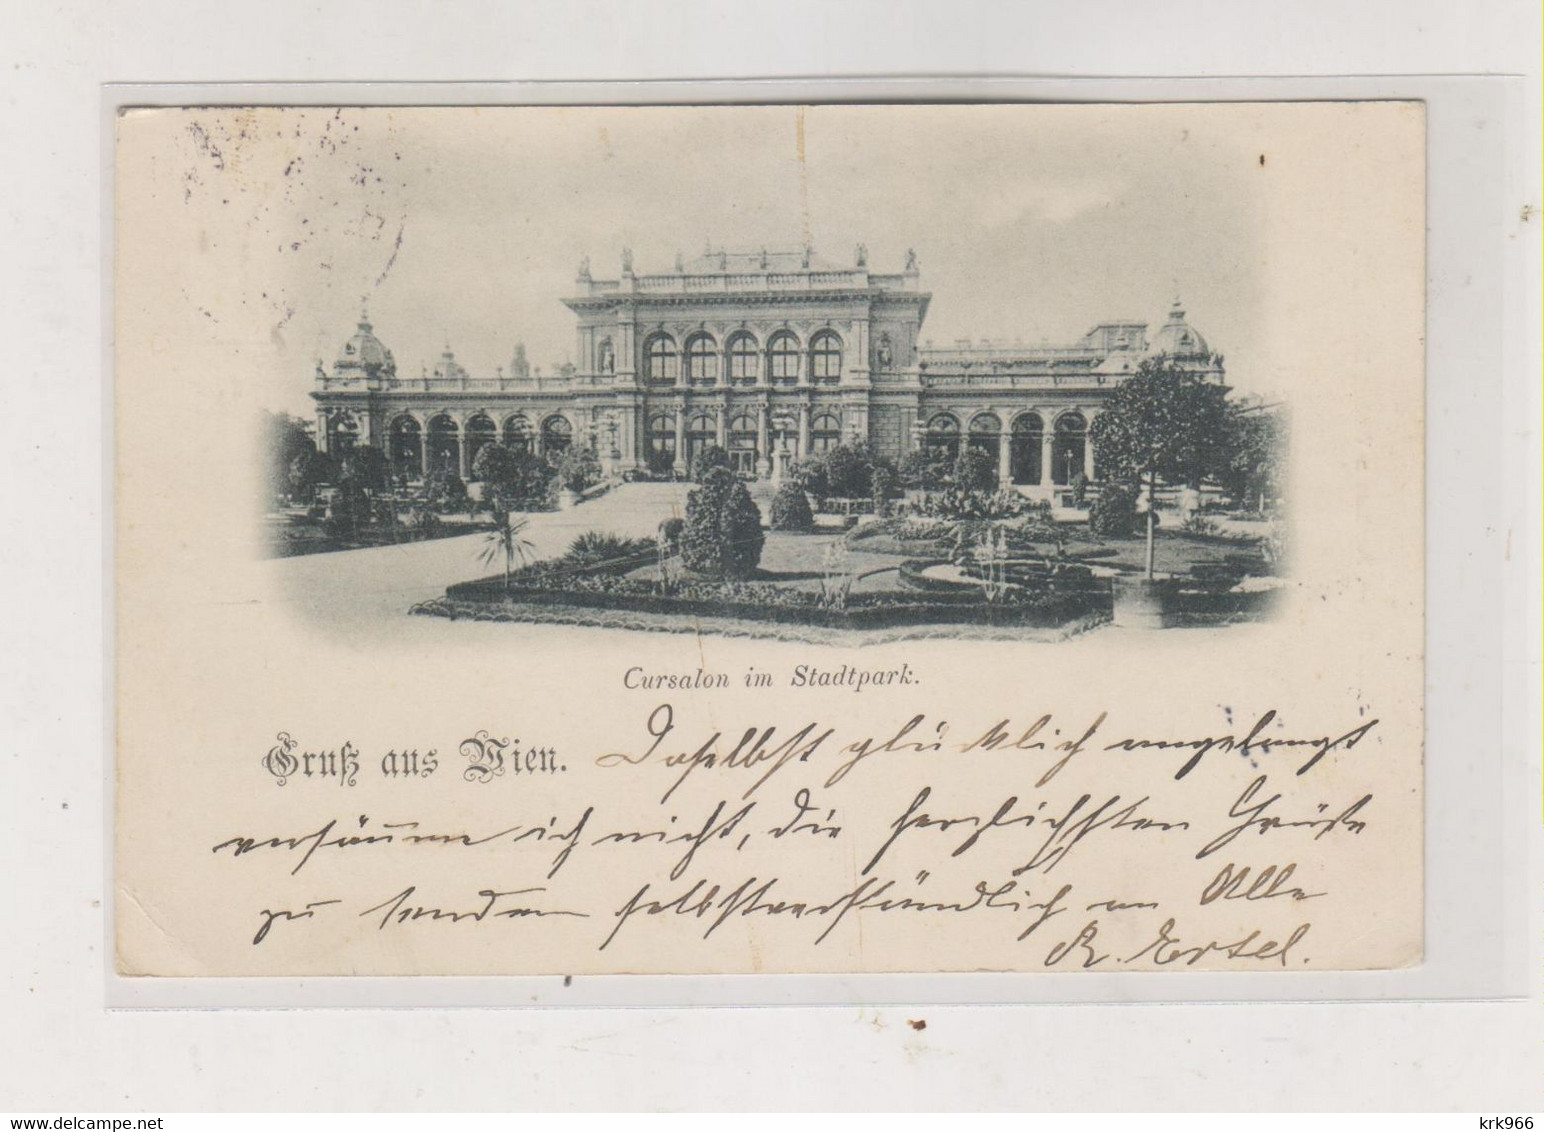 Cursalon im Stadtpark.
Gruß aus Wien. Daselbst glücklich angelangt
versäume ich nicht, die herzlichsten Grüße
zu senden selbstverständlich an Alle
R. Ertel.
delcampe.net
krk966